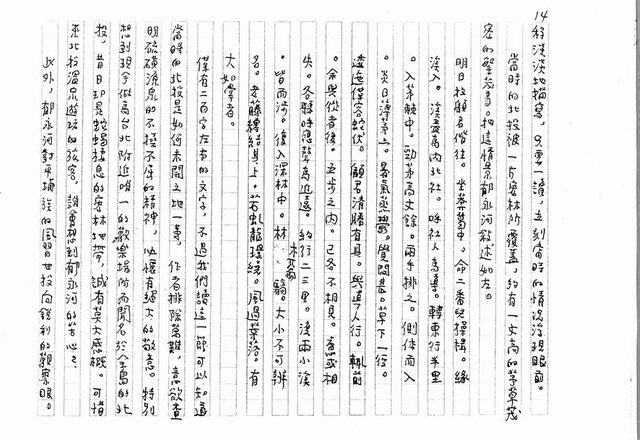 14
經淡淡地描寫，只要一讀，立刻當時的情況浮現眼前。
當時的北投被一片密林所覆蓋，約有一丈高的茅草茂
密的繁茂着。把這情景郁永河敘述如左。
明日拉顧君偕往。坐莽葛中。命二番兒操楫。緣
溪入。溪盡為內北社。呼社人為導。轉東行半里
。入茅棘中。勁茅高丈餘。兩手排之。側体而入
。炎日薄茅上。暑氣蒸鬱。覺悶甚。草下一徑。
逶迤僅容蛇伏。顧君濟勝有具。與導人行。輒前
。余與從者後。五步之內。已各不相見。慮或相
失。各聽呼應聲為近遠。約行二三里。渡兩小溪
。皆而涉。復入深林中。林木蓊翳。大小不可辨
名。老藤纏結其上。若虬龍環繞。風過葉落。有
大如掌者。
僅有二百字左右的文字，不過我們讀這一節可以知道
當時的北投是如何未開之地一事，作者排除萬難意欲查
明硫磺源泉的不撓不屈的精神，必懷有絕大的敬意。特別
想到現今做為台北附近唯一的歡樂場所而聞名於全島的北
投，昔日却是蛇蝎棲息的密林地帶，誠有莫大感概。可惜
來北投溫泉遊玩的旅客，誰會想到郁永河的苦心之
此外，郁永河對平埔族的風習也投向銳利的觀察眼。